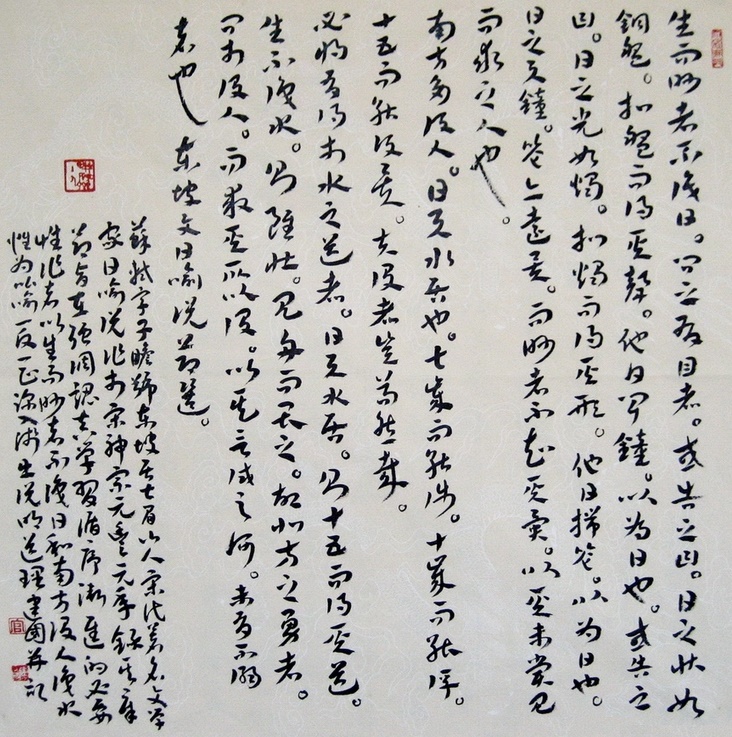 生而眇者不识日。问之有目者。或告之曰。日之状如
铜盘。扣盘而得其声。他日闻钟。以为日也。或告之
曰。日之光如烛。扪烛而得其形。他日揣籥。以为日也。
日之与钟。籥亦远矣。而眇者不知其异。以其未尝见
而求之人也。
南方多没人。日与水居也。七岁而能涉。十岁而能浮。
十五而能没矣。夫没者岂苟然哉。
必将有得于水之道者。日与水居。则十五而得其道。
生不识水。则虽壮。见舟而畏之。故北方之勇者。
问于没人。而求其所以没。以其言试之河。未有不溺
者也 东坡文日喻说节选。
苏轼字子瞻号东坡居士眉山人宋代著名文学
家日喻说作于宋神宗元丰元年
旨在强调认真学习循序渐进的必要
性作者以生而眇者不识日和南方没人识水
性为喻一反一正深入浅出说明道理建国并记